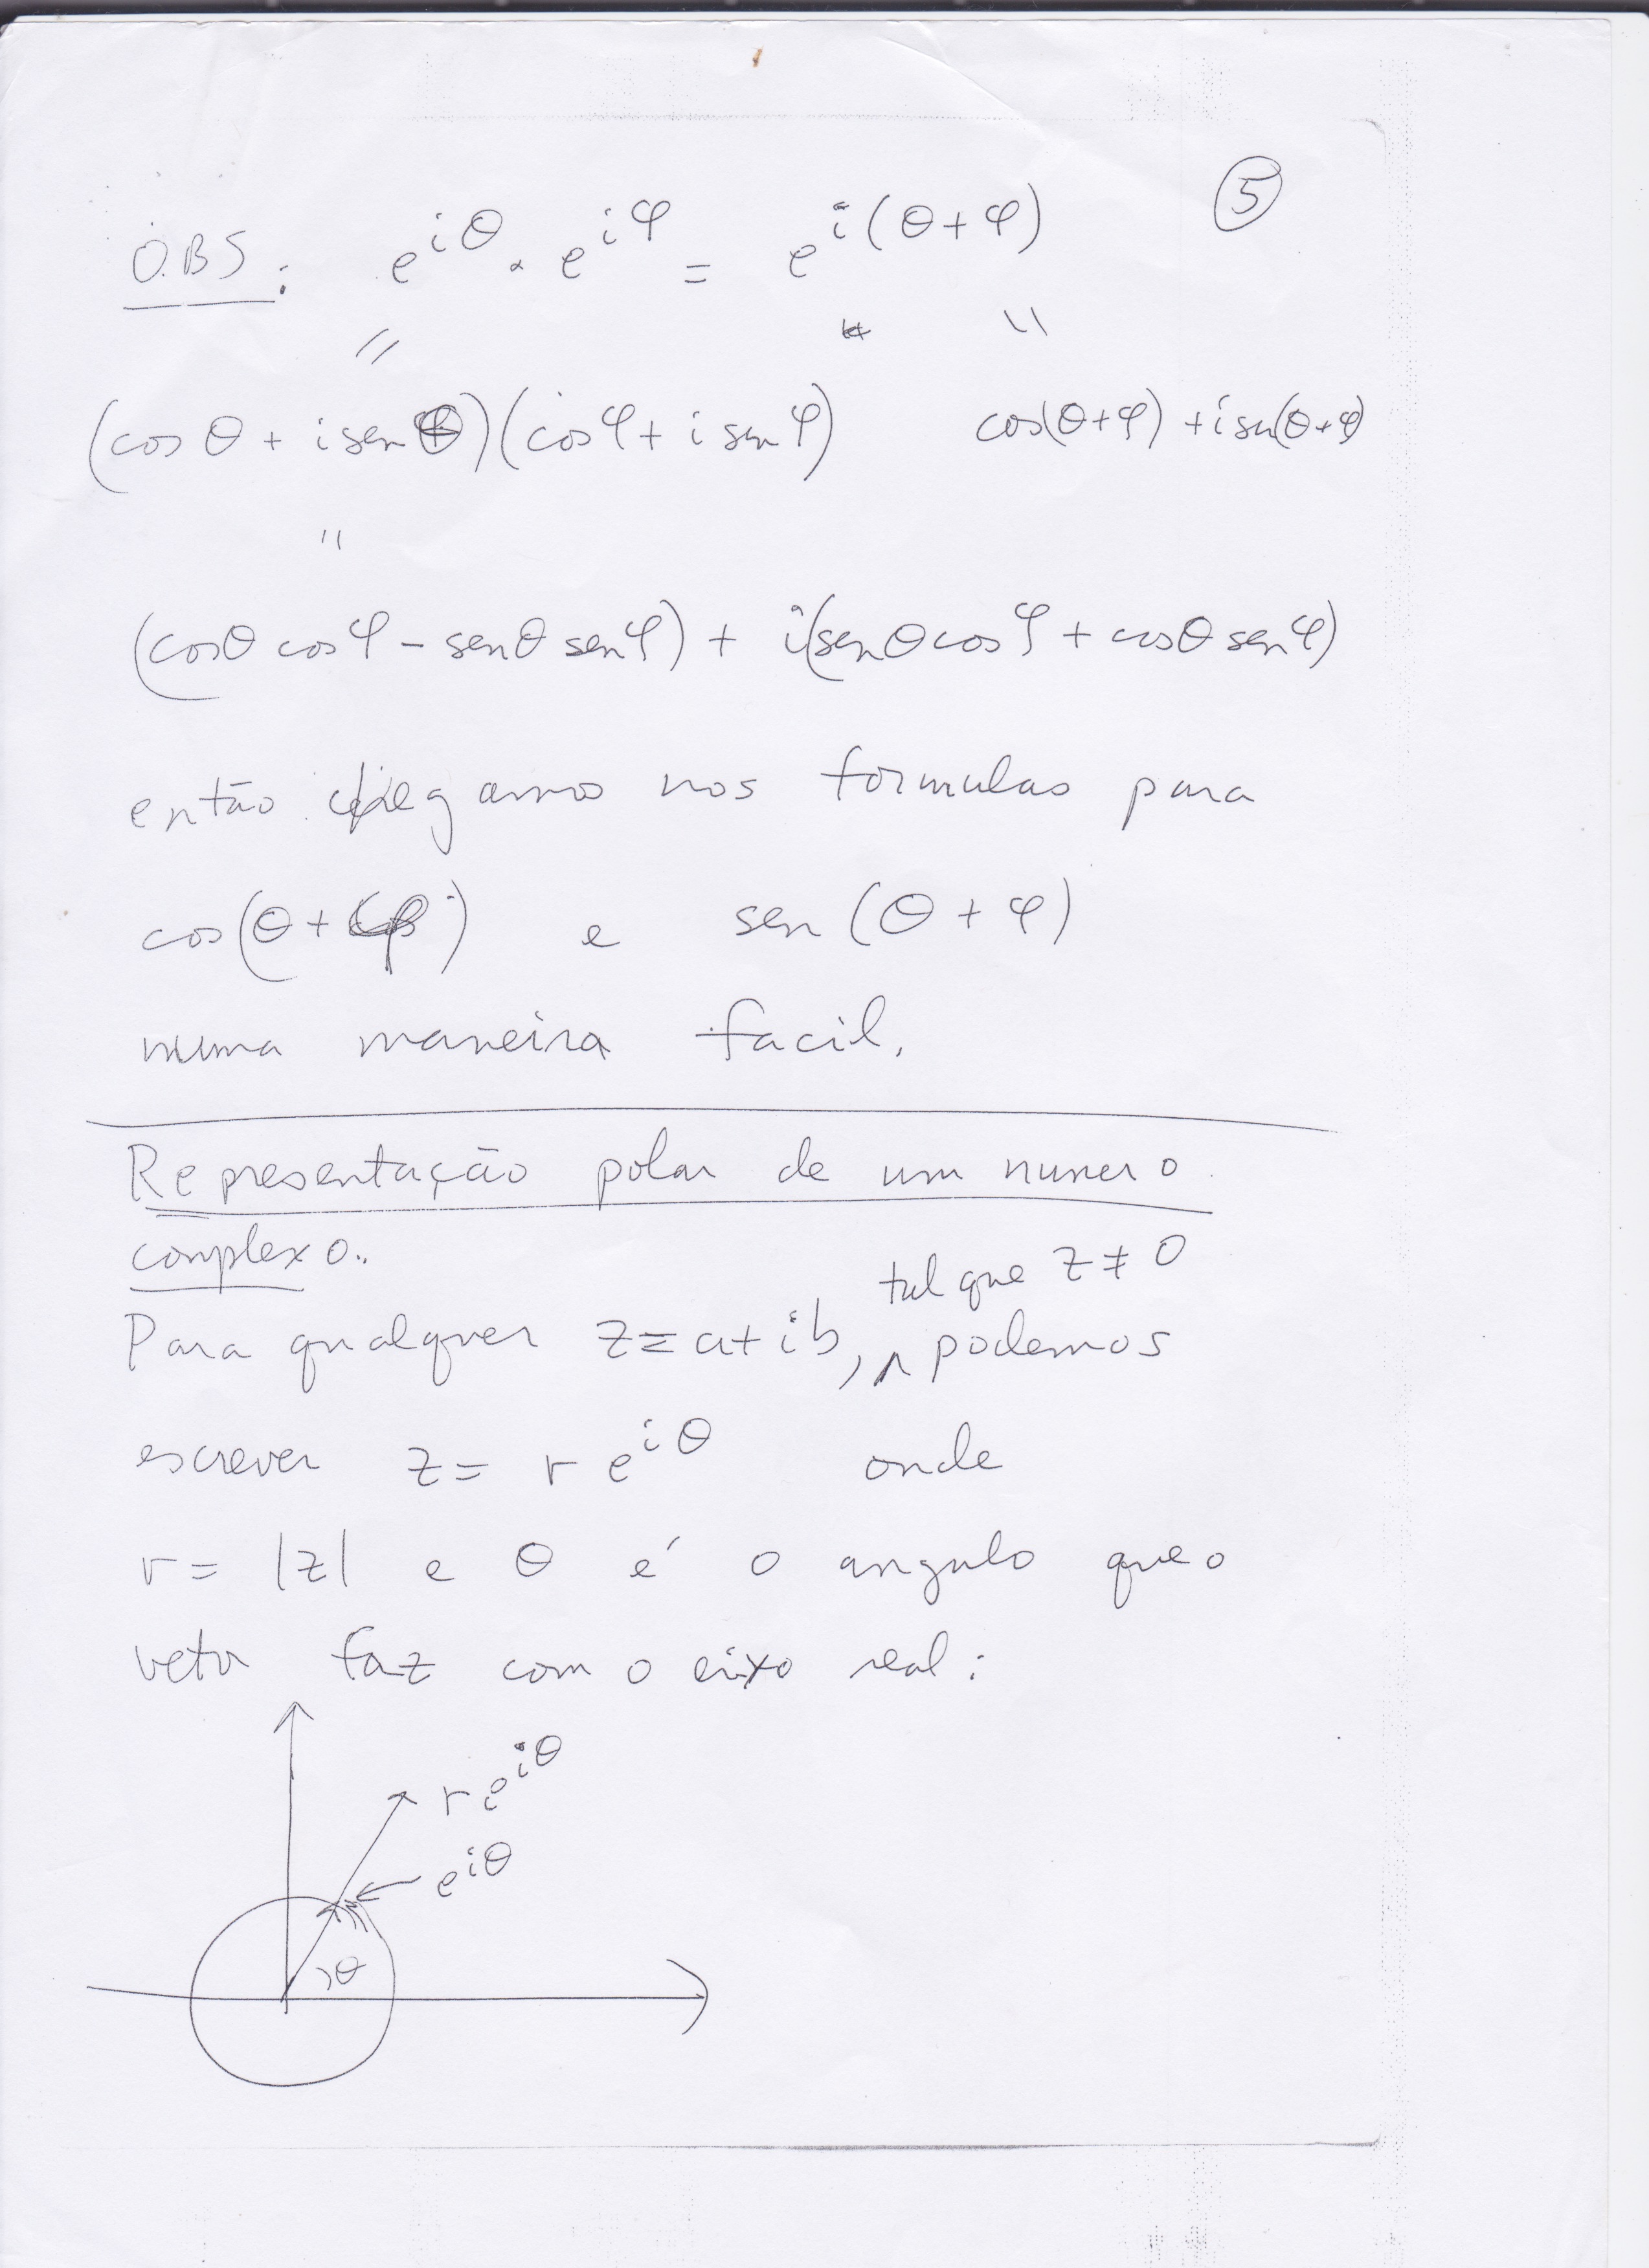 5
OBS: e^{iθ} . e^{iφ} = e^{i(θ+φ)}
" "
(cos θ + i sen θ)(cos φ + i sen φ) cos(θ+φ) + i sen(θ+φ)
"
(cosθ cosφ - senθ senφ) + i(senθ cosφ + cosθ senφ)
então chegamo nos formulas para
cos(θ+φ) e sen(θ+φ)
numa maneira facil.
Representação polar de um numero
complexo.
tal que z ≠ 0
Para qualquer z = a+ib, ∧ podemos
escrever z = r e^{iθ} onde
r = |z| e θ é o angulo que o
vetor faz com o eixo real:
r e^{iθ}
e^{iθ}
θ